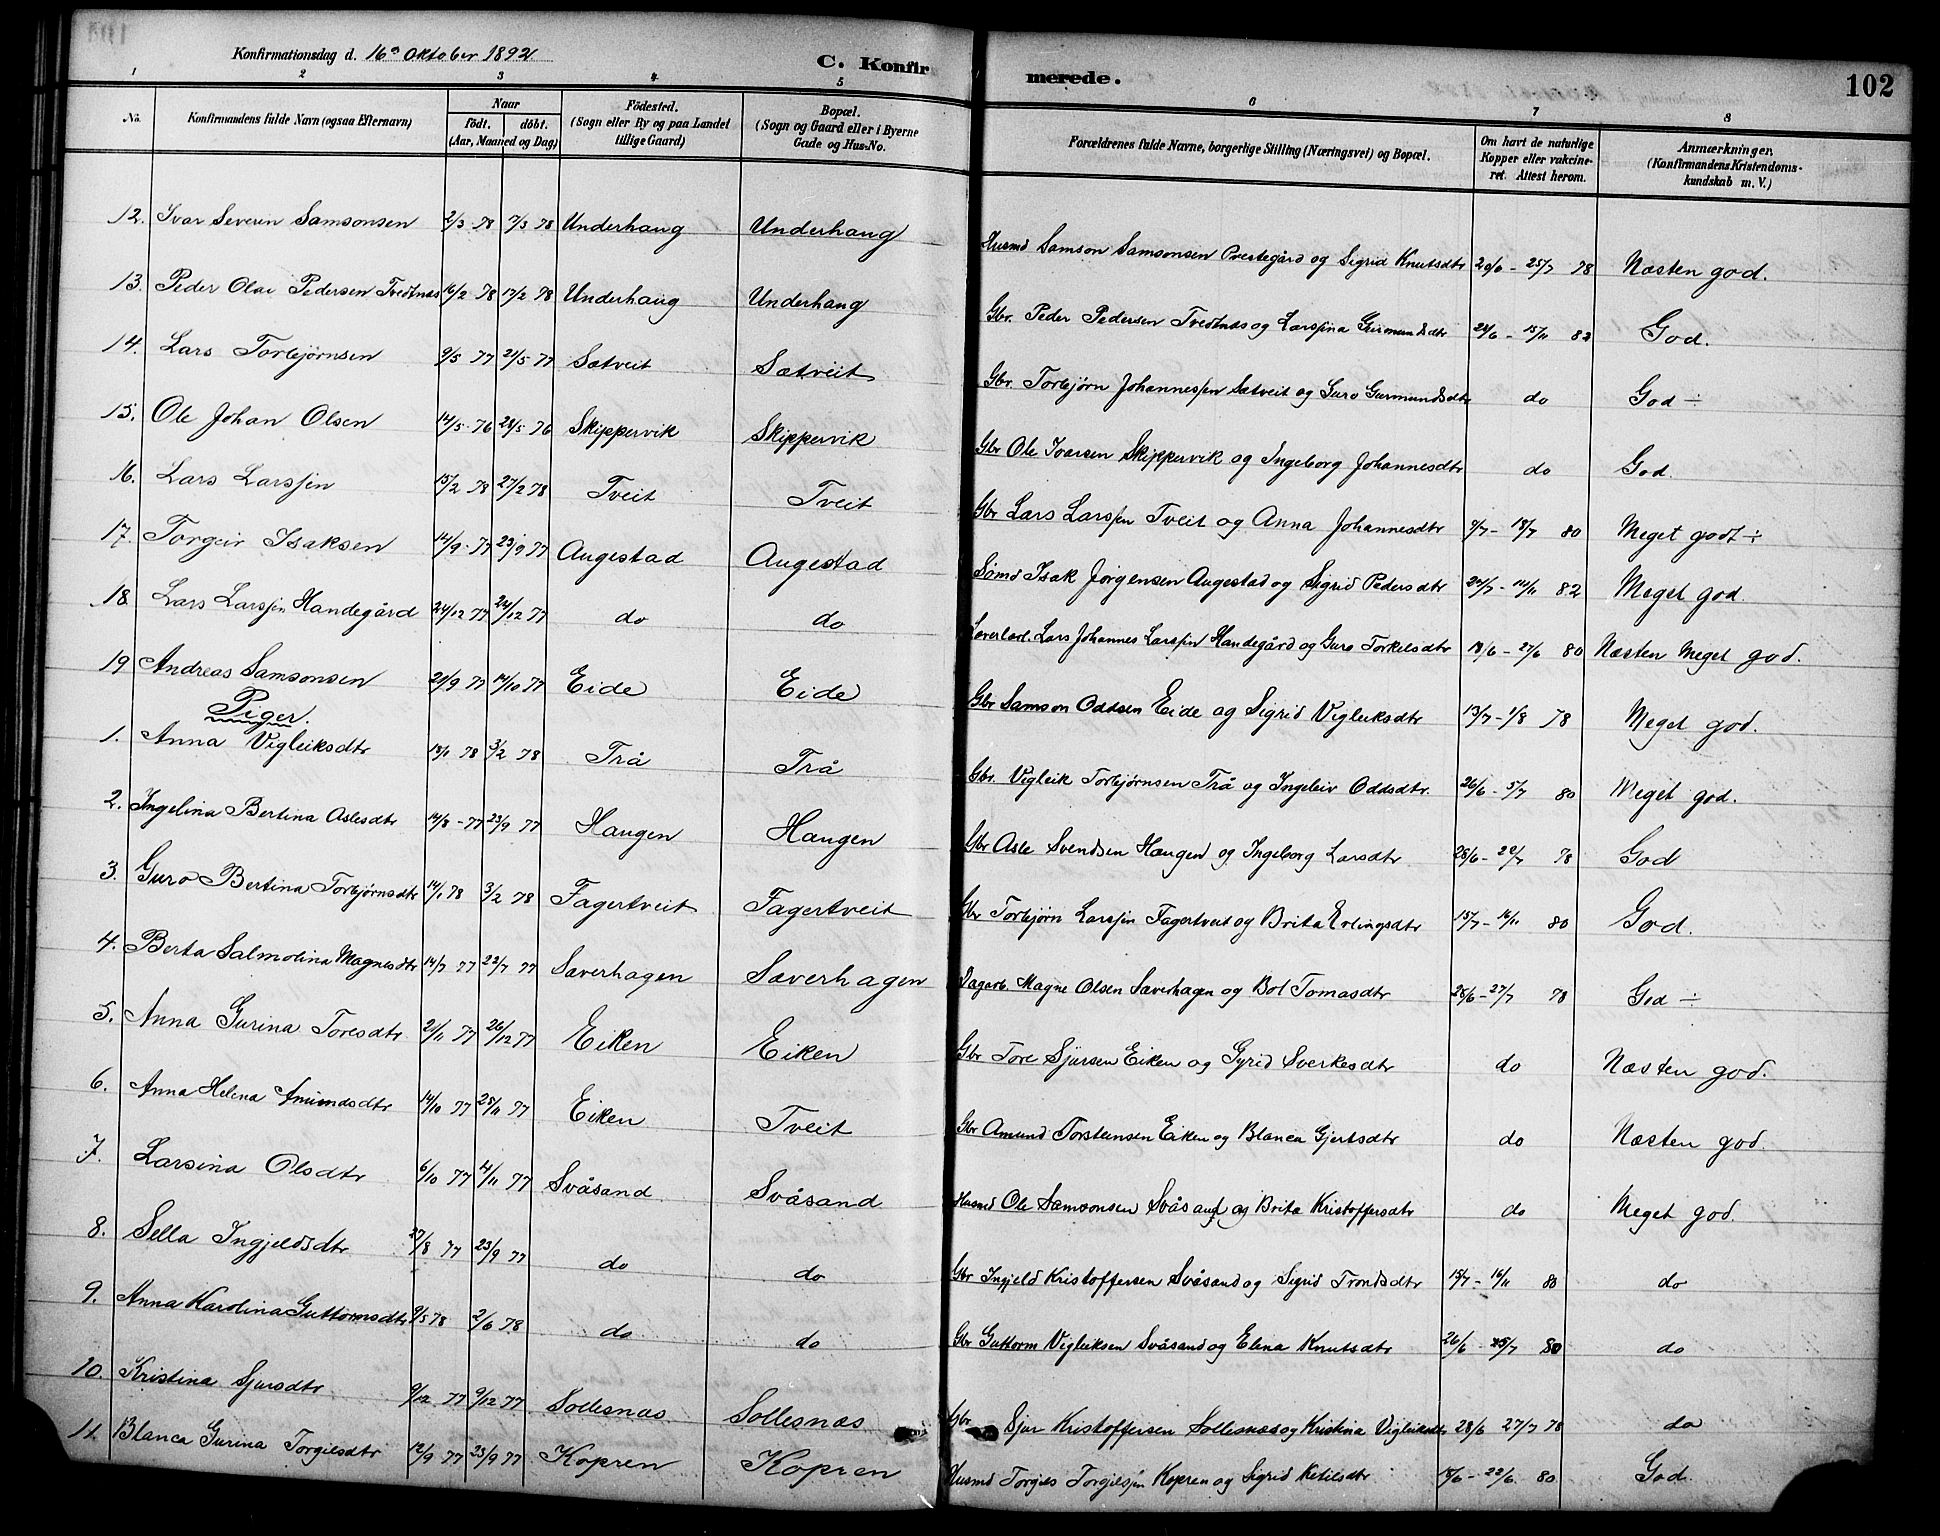 Konfirmationsdag d. 16de Oktober 1892 C. Konfirmerede. 102
1 2 3 4 5 6 7 8
No. Konfirmandens fulde Navn (ogsaa Efternavn) Naar födt. döbt. (Aar, Maaned og Dag) Födested. (Sogn eller By og paa Landet tillige Gaard) Bopæl. (Sogn og Gaard eller i Byerne Gade og Hus-No. Forældrenes fulde Navne, borgerlige Stilling (Næringsvei) og Bopæl. Om havt de naturlige Kopper eller vakcineret. Attest herom. Anmærkninger. (Konfirmandens Kristendomskundskab m. V.)
12. Ivar Severin Samsonsen 2/3 78 7/3 78 Underhaug Underhaug Husmd Samson Samsonsen Prestegård og Sigrid Knutsdtr 20/6 - 25/7 78 Næsten god.
13. Peder Olai Pedersen Tvedtnes 16/2 78 17/2 78 Underhaug Underhaug Gbr. Peder Pedersen Tvedtnes og Larsina Germundsdtr 24/6 - 15/11 82 God.
14. Lars Torbjørnsen 9/5 77 21/5 77 Sætveit Sætveit Gbr. Torbjørn Johannessen Sætveit og Guro Germundsdtr do God ÷
15. Ole Johan Olsen 14/5 76 28/5 76 Skippervik Skippervik Gbr Ole Ivarsen Skippervik og Ingeborg Johannesdtr do God.
16. Lars Larssen 15/2 78 27/2 78 Tveit Tveit Gbr Lars Larssen Tveit og Anna Johannesdtr 9/7 - 18/7 80 Meget godt ÷
17. Torgeir Isaksen 14/9 77 23/9 77 Augestad Augestad Sømd Isak Jörgensen Augestad og Sigrid Pedersdtr 20/7 - 14/11 82 Meget god.
18 Lars Larssen Handegård 24/12 77 26/12 77 do do Lars Johannes Larssen Handegård og Guro Torkelsdtr 18/6 - 27/6 80 Næsten Meget god.
19 Andreas Samsonsen 21/9 77 14/10 77 Eide Eide Gbr Samson Oddsen Eide og Sigrid Vigleiksdtr 13/7 - 1/8 78 Meget god.
Piger.
1. Anna Vigleiksdtr 18/1 78 3/2 78 Trå Trå Gbr. Vigleik Torbjørnsen Trå og Ingeleiv Oddsdtr. 26/6 - 5/7 80 Meget god.
2. Ingelina Bertina Aslesdtr 14/8 - 77 23/9 77 Haugen Haugen Gbr Asle Svendsen Haugen og Ingeborg Larsdtr 28/6 - 22/7 78 God
3. Guro Bertina Torbjørnsdtr 14/1 78 3/2 78 Fagertveit Fagertveit Gbr Torbjørn Larssen Fagertveit og Brita Erlingsdtr 15/7 - 16/11 80 God.
4. Berta Salmolina Magnesdtr 14/7 77 22/7 77 Saverhagen Saverhagen Dagarb. Magne Olsen Saverhagen og Bol Tomasdtr 28/6 - 27/7 78 God ÷
5. Anna Gurina Toresdtr 21/11 77 26/12 77 Eiken Eiken Gbr Tore Sjursen Eiken og Gyrid Sverkesdtr do Næsten god.
6. Anna Helena Amundsdtr 14/10 77 25/11 77 Eiken Tveit Gbr Amund Torsteinsen Eiken og Blanca Gjertsdtr do Næsten god.
7. Larsina Olsdtr 6/10 77 4/11 77 Svåsand Svåsand Husmd Ole Samsonsen Svåsand og Brita Kristoffersdtr do Meget god.
8. Sella Ingjeldsdtr 27/8 77 23/9 77 do do Gbr Ingjeld Kristoffersen Svåsand og Sigrid Trondsdtr 15/7 - 16/11 80 do
9. Anna Karolina Guttormsdtr 9/5 78 2/6 78 do do Gbr Guttorm Vigleiksen Svåsand og Elena Knutsdtr 26/6 - 25/7 80 do
10. Kristina Sjursdtr 9/12 77 9/12 77 Sollesnæs Sollesnæs Gbr Sjur Kristoffersen Sollesnæs og Kristina Vigleiksdtr 28/6 27/7 78 do
11. Blanca Gurina Torgilsdtr 12/9 77 23/9 77 Kopren Kopren Husmd Torgils Torgilssen Kopren og Sigrid Ketilsdtr 18/6 - 22/6 80 God.